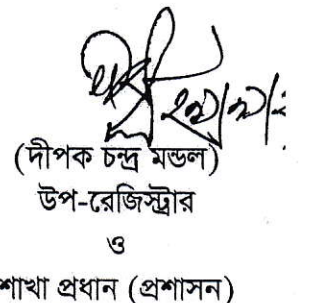 (দীপক চন্দ্র মন্ডল)
উপ-রেজিস্ট্রার
ও
শাখা প্রধান (প্রশাসন)